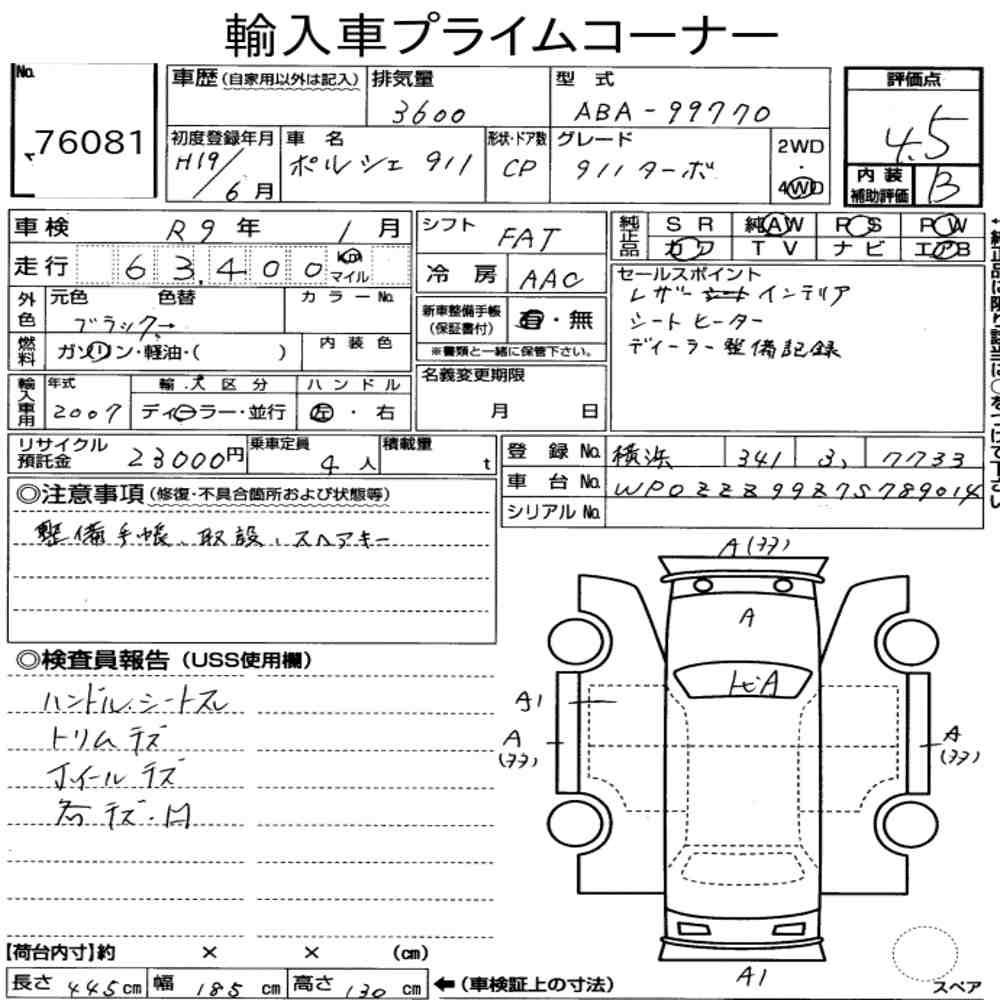 輸入車プライムコーナー
No. 76081
車歴(自家用以外は記入)
排気量 3600
型式 ABA-99770
評価点 4.5
初度登録年月 H19/6月
車名 ポルシェ 911
形状・ドア数 CP
グレード 911ターボ
2WD・4WD
内装補助評価 B
車検 R9年 1月
走行 63,400 km マイル
シフト FAT
冷房 AAC
純正品 SR 純AW PS PW
カワ TV ナビ エアB
外色 元色 色替 カラーNo.
ブラック→
燃料 ガソリン・軽油・( )
内装色
新車整備手帳(保証書付) 有・無
※書類と一緒に保管下さい。
セールスポイント
レザー インテリア
シートヒーター
ディーラー整備記録
輸入車用 年式 2007
輸入区分 ディーラー・並行
ハンドル 左・右
名義変更期限 月 日
リサイクル預託金 23000円
乗車定員 4人
積載量 t
登録No. 横浜 341 7733
車台No. WP0ZZZ99Z7S789014
シリアルNo.
◎注意事項(修復・不具合箇所および状態等)
整備手帳、取説、スペアキー
◎検査員報告(USS使用欄)
ハンドル、シートスレ
トリムキズ
ホイールキズ
キズ・凹
A(キズ)
A
トビA
A1
A
(キズ)
A
(キズ)
A1
スペア
【荷台内寸】約 × × (cm)
長さ 445cm 幅 185cm 高さ 130cm ←(車検証上の寸法)